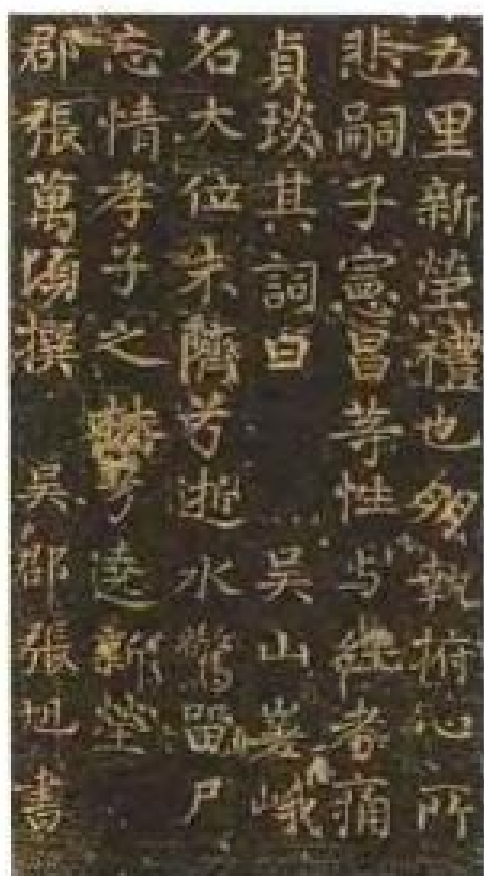 五里新塋禮也多執拊心所
悲嗣子憲昌等性与往者痛
貞琰其詞曰 吴山嵳峨
名大位未隮兮逝水驚留尸
忘情孝子之兮遶新塋
郡張萬頃撰 吴郡張旭書